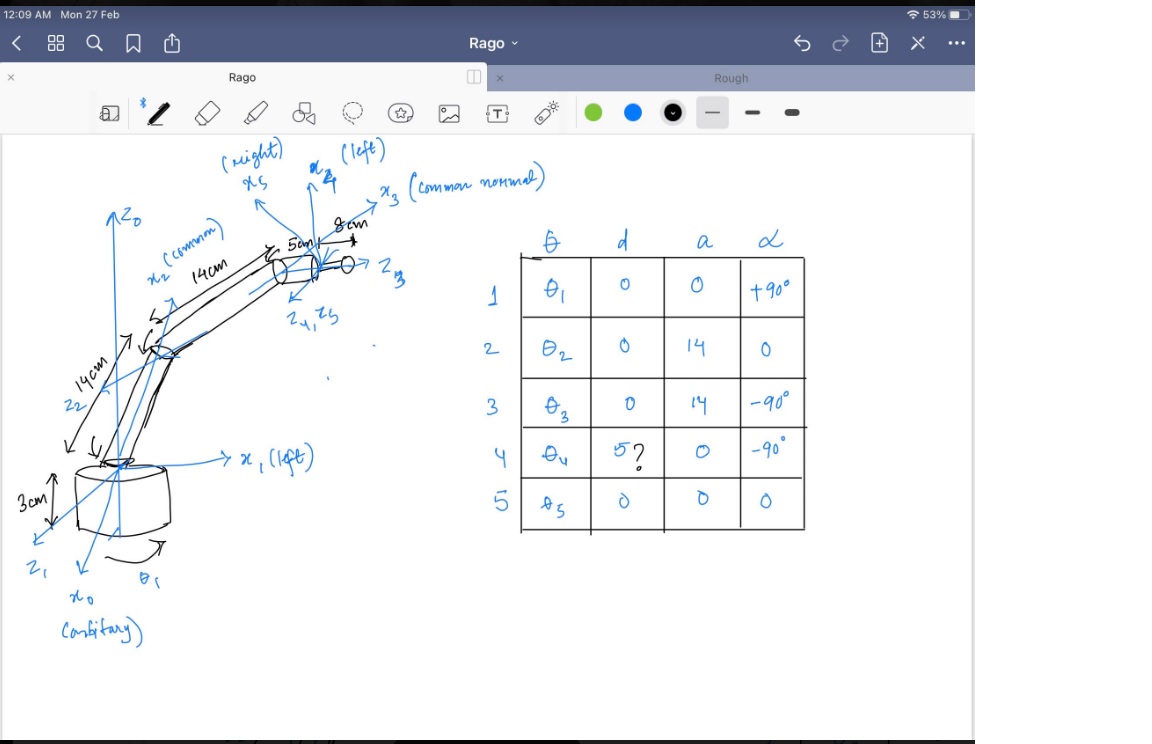 12:09 AM Mon 27 Feb
53%
Rago
Rago
Rough
T
(right)
x5
x4 (left)
x3 (common normal)
z0
x2 (common)
14cm
5cm
8cm
z3
z4, z5
14cm
z2
x1 (left)
3cm
z1
x0
θ1
(arbitary)
θ d a α
1 θ1 0 0 +90°
2 θ2 0 14 0
3 θ3 0 14 -90°
4 θ4 5? 0 -90°
5 θ5 0 0 0